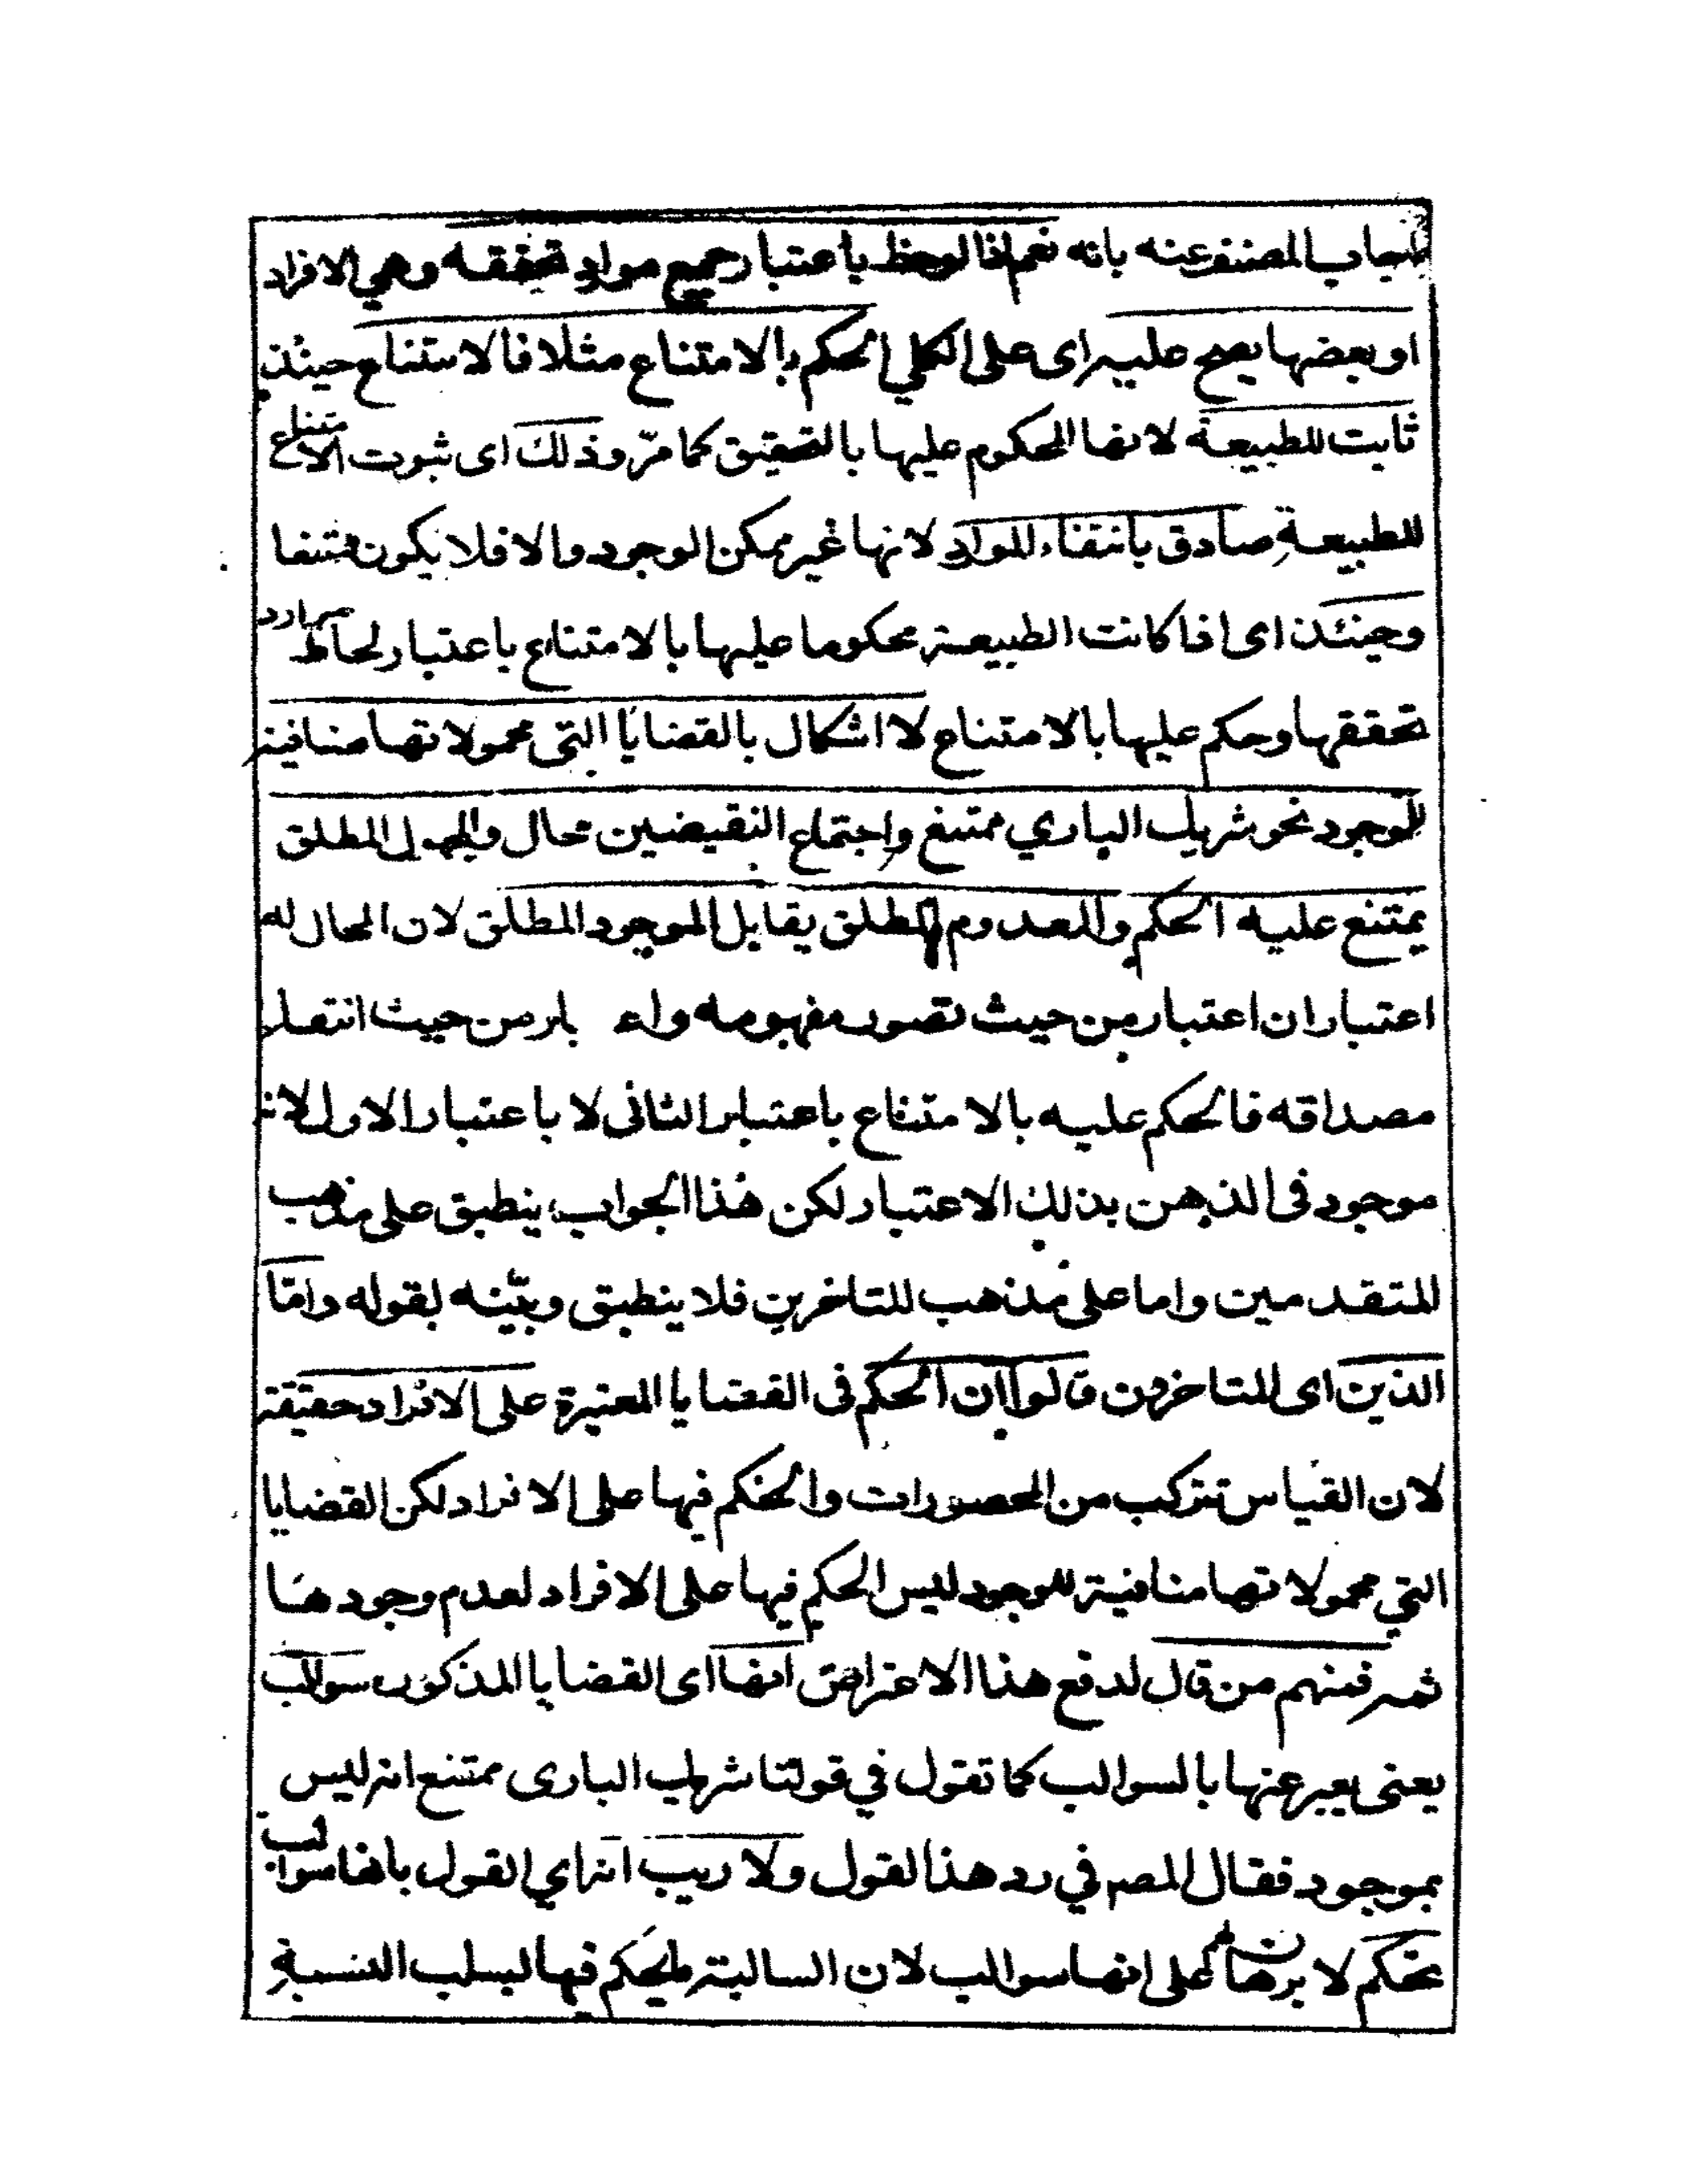 اجاب المصنف عنه بانه نعم اذا لوحظ باعتبار جميع موارد تحققه وهي الافراد
او بعضها يصح عليه اى على الكلي الحكم بالامتناع مثلا فالامتناع حينئذ
ثابت للطبيعة لانها المحكوم عليها بالتحقيق كما مرّ وذلك اى ثبوت الامتناع
للطبيعة صادق بانتفاء الموارد لانها غير ممكن الوجود والا فلا يكون ممتنعا
وحينئذ اى اذا كانت الطبيعة محكوما عليها بالامتناع باعتبار لحاظ موارد
تحققها وحكم عليها بالامتناع لا اشكال بالقضايا التى محمولاتها منافية
للوجود نحو شريك الباري ممتنع واجتماع النقيضين محال والمجهول المطلق
يمتنع عليه الحكم والمعدوم المطلق يقابل الموجود المطلق لان المحال له
اعتباران اعتبار من حيث تصور مفهومه واء بار من حيث انتفاء
مصداقه فالحكم عليه بالامتناع باعتبار الثانى لا باعتبار الاول لانه
موجود فى الذهن بذلك الاعتبار لكن هذا الجواب ينطبق على مذهب
المتقدمين واما على مذهب المتاخرين فلا ينطبق وبيّنه بقوله وامّا
الذين اى المتاخرون قالوا ان الحكم فى القضايا المعتبرة على الافراد حقيقة
لان القياس تتركب من المحصورات والحكم فيها على الافراد لكن القضايا
التي محمولاتها منافية للوجود ليس الحكم فيها على الافراد لعدم وجودها
ثم فمنهم من قال لدفع هذا الاعتراض انها اى القضايا المذكورة سوالب
يعنى يعبر عنها بالسوالب كما تقول في قولنا شريك البارى ممتنع انه ليس
بموجود فقال المصـ في رد هذا القول ولا ريب انه اي القول بانها سوالب
تحكم لا برهان لهم على انها سوالب لان السالبة ما يحكم فيها بسلب النسبة